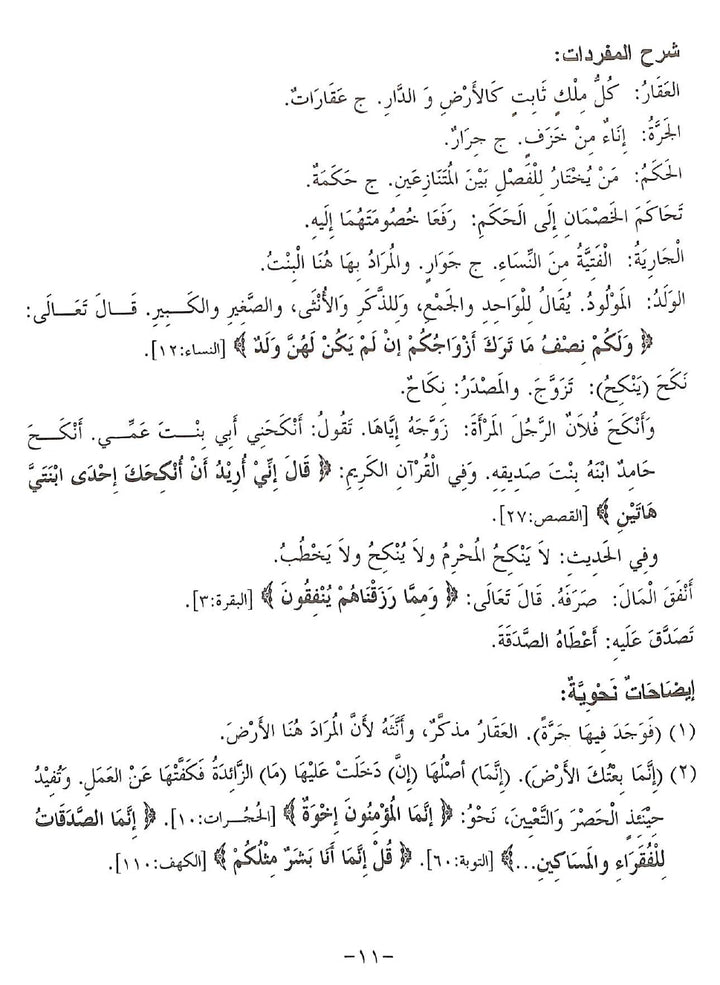 شرح المفردات:
العَقَارُ: كُلُّ مِلْكٍ ثَابِتٍ كَالأَرْضِ وَ الدَّارِ. ج عَقَارَاتٌ.
الجَرَّةُ: إِنَاءٌ مِنْ خَزَفٍ. ج جِرَارٌ.
الحَكَمُ: مَنْ يُخْتَارُ لِلْفَصْلِ بَيْنَ الْمُتَنَازِعَينِ. ج حَكَمَةٌ.
تَحَاكَمَ الخَصْمَانِ إِلَى الحَكَمِ: رَفَعَا خُصُومَتَهُمَا إِلَيهِ.
الْجَارِيَةُ: الْفَتِيَّةُ مِنَ النِّسَاءِ. ج جَوَارٍ. والمُرَادُ بِهَا هُنَا الْبِنْتُ.
الوَلَدُ: المَوْلُودُ. يُقَالُ لِلْوَاحِدِ والجَمْعِ، وَلِلذَّكَرِ وَالأُنْثَى، والصَّغِيرِ والكَــبِيرِ. قَــالَ تَعَــالَى:
﴿ وَلَكُمْ نِصْفُ مَا تَرَكَ أَزْوَاجُكُمْ إِنْ لَمْ يَكُنْ لَهُنَّ وَلَدٌ ﴾ [النساء:١٢].
نَكَحَ (يَنْكِحُ): تَزَوَّجَ. والمَصْدَرُ: نِكَاحٌ.
وَأَنْكَحَ فُلاَنٌ الرَّجُلَ المَرْأَةَ: زَوَّجَهُ إِيَّاهَا. تَقُولُ: أَنْكَحَنِي أَبِي بِنْــتَ عَمِّــي. أَنْكَــحَ
حَامِدٌ ابْنَهُ بِنْتَ صَدِيقِهِ. وَفِي الْقُرْآنِ الكَرِيمِ: ﴿ قَالَ إِنِّي أُرِيْدُ أَنْ أُنْكِحَكَ إِحْدَى ابْنَتَيَّ
هَاتَيْنِ ﴾ [القصص:٢٧].
وفِي الحَدِيثِ: لاَ يَنْكِحُ المُحْرِمُ ولاَ يُنْكِحُ ولاَ يَخْطُبُ.
أَنْفَقَ الْمَالَ: صَرَفَهُ. قَالَ تَعَالَى: ﴿ وَمِمَّا رَزَقْنَاهُمْ يُنْفِقُونَ ﴾ [البقرة:٣].
تَصَدَّقَ عَلَيهِ: أَعْطَاهُ الصَّدَقَةَ.
إِيضَاحَاتٌ نَحْوِيَّةٌ:
(١) (فَوَجَدَ فِيهَا جَرَّةً). العَقَارُ مذكَّرٌ، وأَنَّثَهُ لأَنَّ المُرَادَ هُنَا الأَرْضُ.
(٢) (إِنَّمَا بِعْتُكَ الأَرْضَ). (إِنَّمَا) أَصْلُهَا (إِنَّ) دَخَلَتْ عَلَيْهَا (مَا) الزَّائِدَةُ فَكَفَّتْهَا عَنْ العَمَلِ. وَتُفِيْدُ
حِيْنَئِذٍ الْحَصْرَ وَالتَّعْيِينَ، نَحْوُ: ﴿ إِنَّمَا المُؤْمِنُونَ إِخْوَةٌ ﴾ [الحُجُرات:١٠]. ﴿ إِنَّمَا الصَّدَقَاتُ
لِلْفُقَرَاءِ والمَسَاكِينِ...﴾ [التوبة:٦٠]. ﴿ قُلْ إِنَّمَا أَنَا بَشَرٌ مِثْلُكُمْ ﴾ [الكهف:١١٠].
-١١-